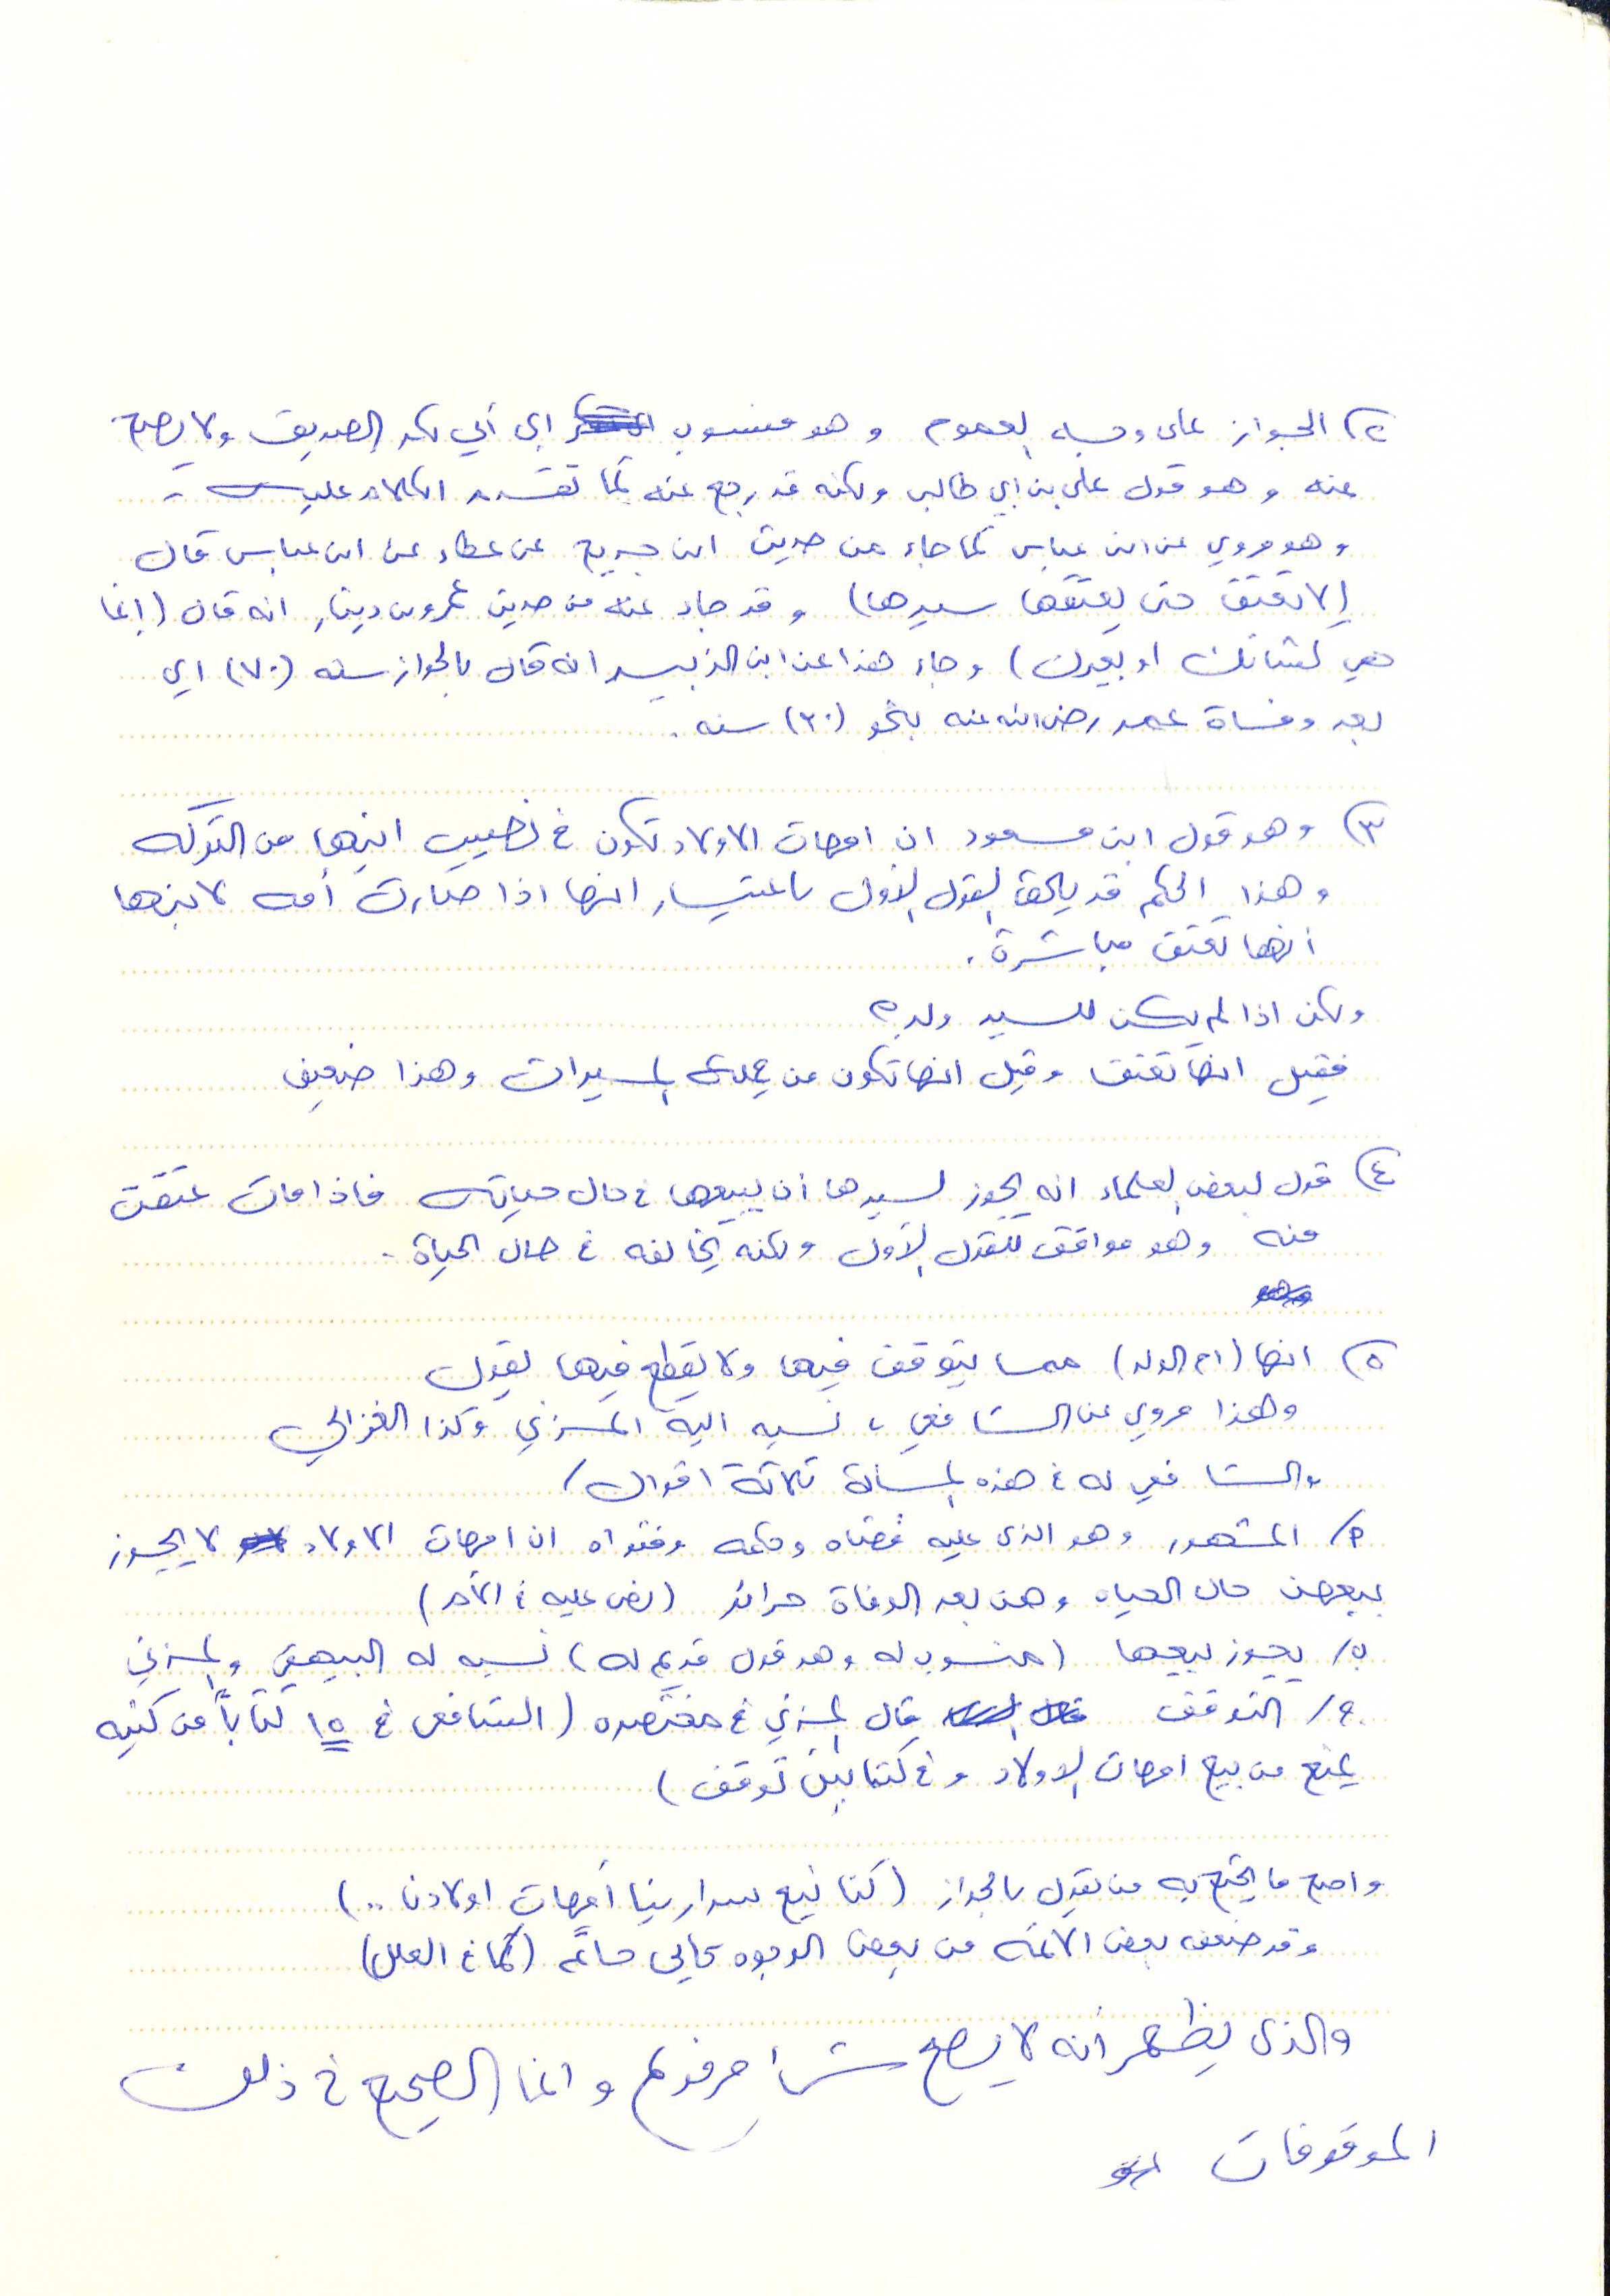 ٢) الجواز على وجه العموم وهو منسوب إلى أبي بكر الصديق ولا يصح
عنه وهو قول علي بن ابي طالب ولكنه قد رجع عنه كما تقدم الكلام عليه .
وهو مروي عن ابن عباس كما جاء من حديث ابن جريج عن عطاء عن ابن عباس قال
(لا تعتق حتى يعتقها سيدها) وقد جاء عنه من حديث عمرو بن دينار انه قال (إنما
هي كشاتك او بعيرك) وجاء هذا عن ابن الزبير انه قال بالجواز سنه (٧٠) اي
بعد وفاة عمر رضي الله عنه بنحو (٣٠) سنه .
٣) وهو قول ابن مسعود ان امهات الاولاد تكون في نصيب ابنها من التركه
وهذا الحكم قد يلحق بالقول الأول باعتبار انها اذا صارت أمه لابنها
أنها تعتق مباشرة .
ولكن اذا لم يكن للسيد ولد ؟
فقيل انها تعتق وقيل انها تكون من الميراث وهذا ضعيف
٤) قول لبعض العلماء انه يجوز لسيدها أن يبيعها في حال حياته فاذا مات عتقت
منه وهو موافق للقول الأول ولكنه يخالفه في حال الحياة .
٥) انها (ام الولد) مما يتوقف فيها ولا يقطع فيها بقول
وهذا مروي عن الشافعي ، نسبه اليه المزني وكذا الغزالي
والشافعي له في هذه المسألة ثلاثة اقوال /
أ/ المشهور وهو الذي عليه قضاه وحكمه وفتواه ان امهات الاولاد لا يجوز
بيعهن حال الحياه وهن بعد الوفاة حرائر (نص عليه في الأم)
ب/ يجوز بيعها (منسوب له وهو قول قديم له) نسبه له البيهقي والمزني
ج/ التوقف قال المزني في مختصره (الشافعي في ١٥ كتاباً من كتبه
يمنع من بيع امهات الاولاد وفي كتابين توقف)
واصح ما يحتج به من يقول بالجواز (كنا نبيع سرارينا أمهات اولادنا ..)
وقد ضعفه بعض الائمه من بعض الوجوه كأبي حاتم (كما في العلل)
والذي يظهر أنه لا يصح شيئا مرفوع وانما الصحيح في ذلك
الموقوفات